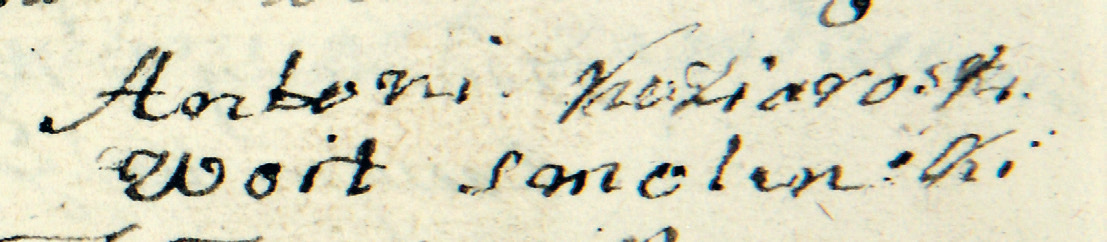 Antoni Koziaroski.
Woit Smolenski